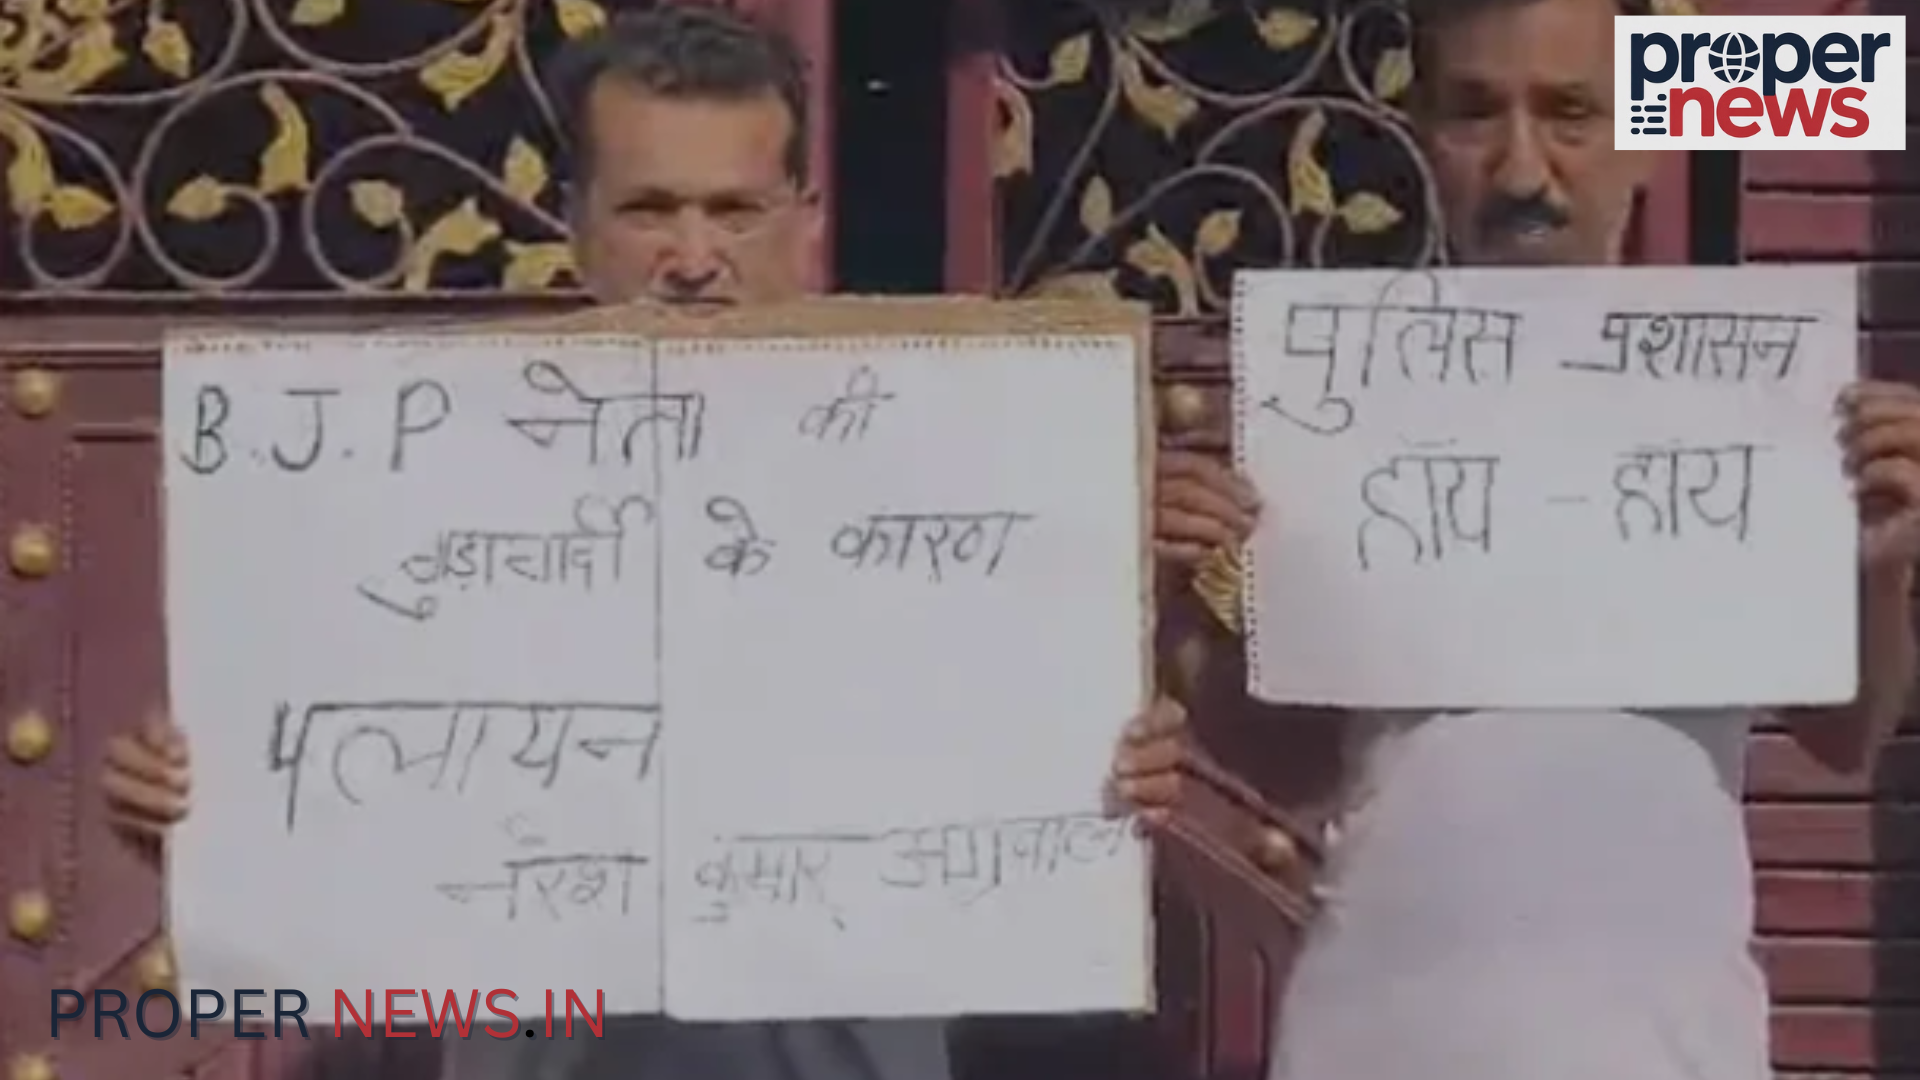 proper
news
B.J.P नेता की
के कारण
पलायन
नरेश कुमार अग्रवाल
पुलिस प्रशासन
हाॅय - हाॅय
PROPER NEWS.IN